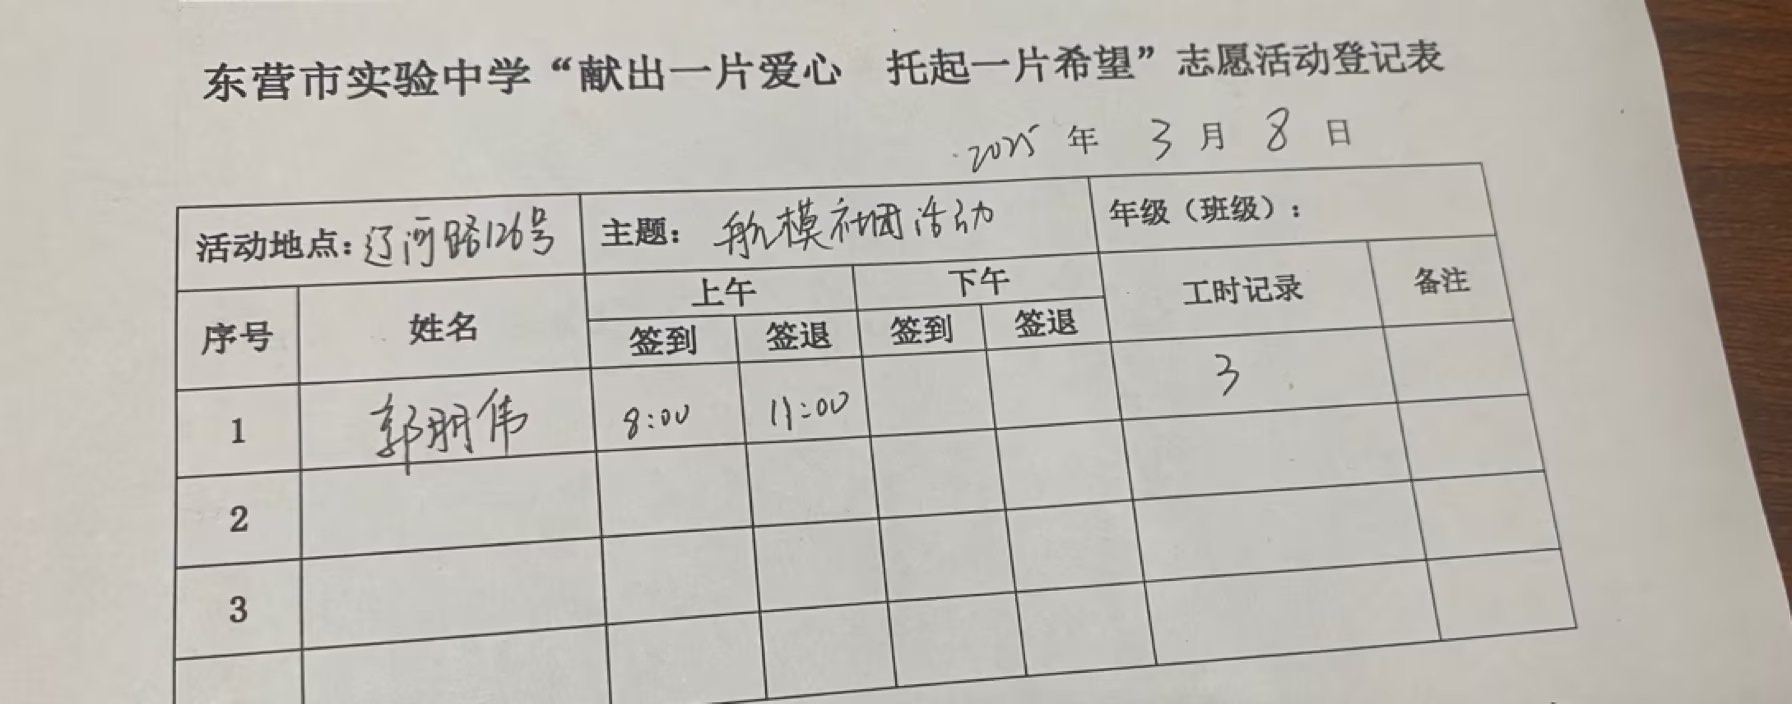 东营市实验中学“献出一片爱心　托起一片希望”志愿活动登记表
2025 年 3 月 8 日
活动地点：辽河路126号 主题： 航模社团活动 年级（班级）：
序号 姓名 上午 下午 工时记录 备注
签到 签退 签到 签退
1 郭朋伟 8:00 11:00 3
2
3